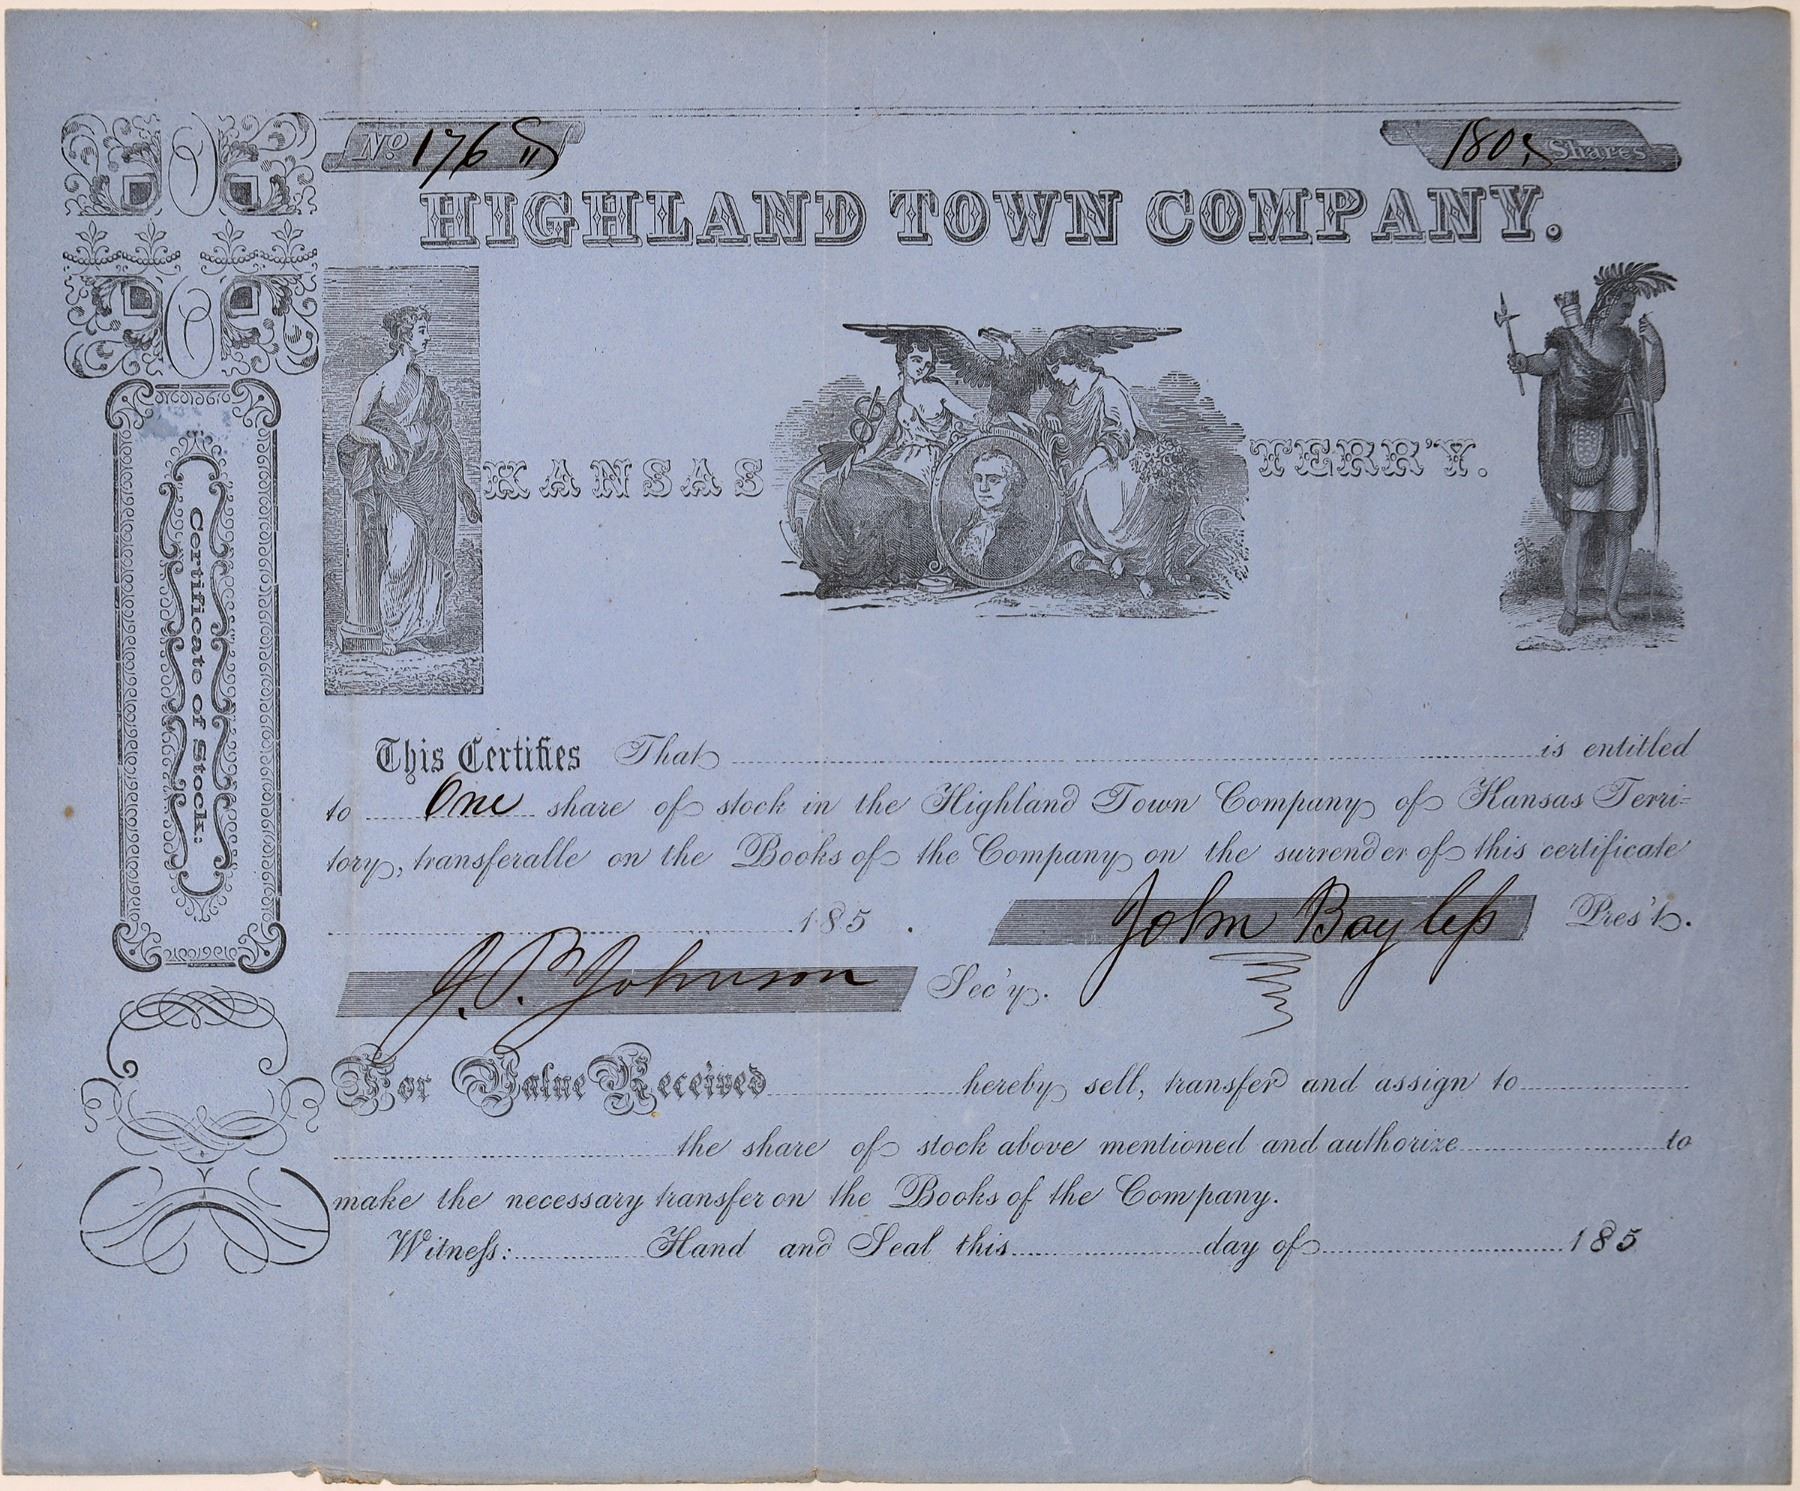 No 176
180 Shares
HIGHLAND TOWN COMPANY.
KANSAS TERR'Y.
Certificate of Stock.
This Certifies That is entitled
to One share of stock in the Highland Town Company of Kansas Terri=
tory, transferalle on the Books of the Company on the surrender of this certificate
185 . John Bayless Pres't.
J. P. Johnson Sec'y.
For Value Received hereby sell, transfer and assign to
the share of stock above mentioned and authorize to
make the necessary transfer on the Books of the Company.
Witness: Hand and Seal this day of 185